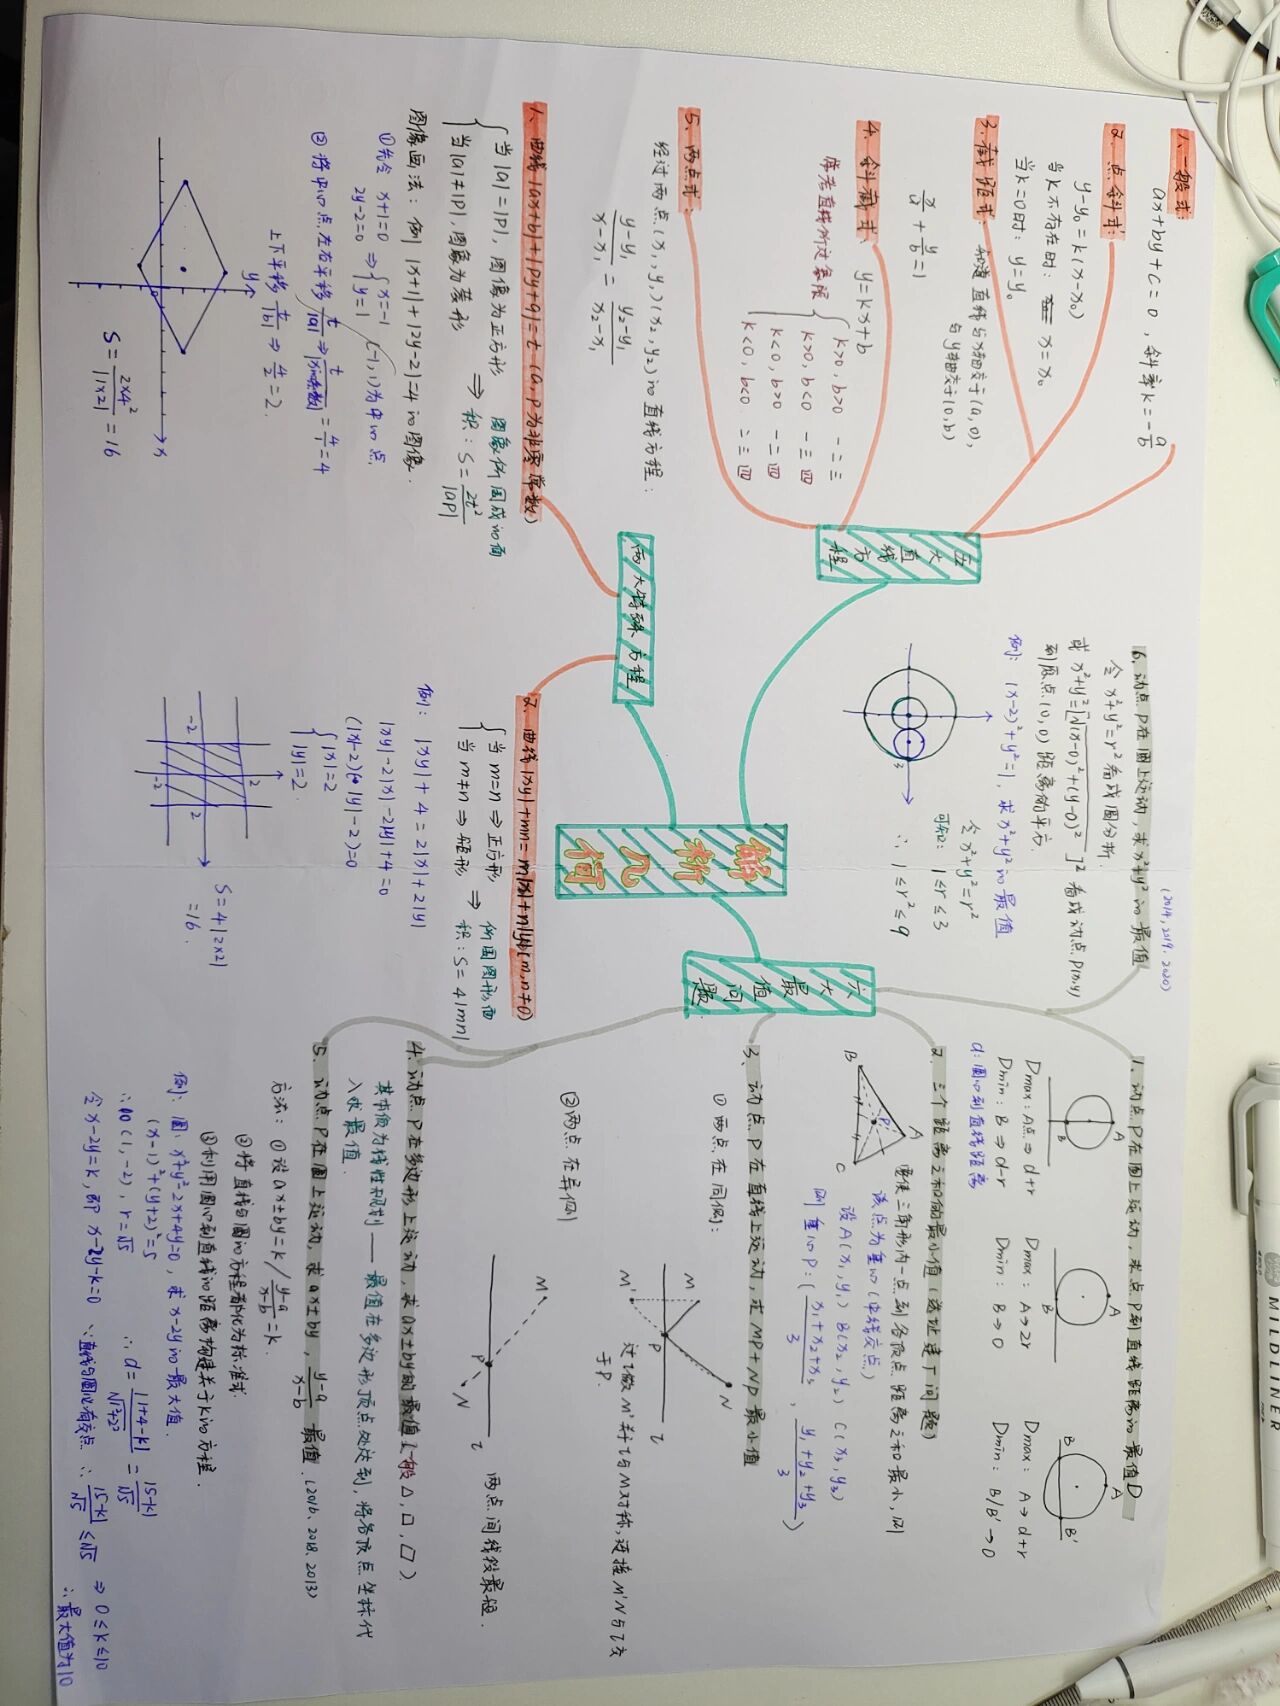 解析几何
五大直线方程
1、一般式:
ax+by+c=0, 斜率k=-a/b
2、点斜式:
y-y₀=k(x-x₀)
当k不存在时: x=x₀
当k=0时: y=y₀
3、截距式: 知道直线与x轴交于(a,0),
与y轴交于(0,b)
x/a+y/b=1
4、斜截式、 y=kx+b
k>0, b>0 一二三
k>0, b<0 一三四
k<0, b>0 一二四
k<0, b<0 二三四
5、两点式:
经过两点(x₁,y₁)(x₂,y₂)的直线方程:
(y-y₁)/(x-x₁)=(y₂-y₁)/(x₂-x₁)
两大特殊方程
1、曲线|ax+b|+|py+q|=t (a,p为非零常数)
当|a|=|p|, 图像为正方形
当|a|≠|p|, 图像为菱形
⇒ 图象所围成的面
积: S=2t²/|ap|
图像画法: 例 |x+1|+|2y-2|=4的图像.
①先令 x+1=0
2y-2=0 ⇒ {x=-1
y=1 (-1,1)为中心点,
②将中心点左右平移 t/|a| ⇒ t/|x的系数| = 4/1 = 4
上下平移 t/|b| ⇒ 4/2=2.
y
x
0
S=2×4²/|1×2|=16
2、曲线|xy|+mn=m|x|+n|y|(m,n≠0)
当m=n ⇒ 正方形
当m≠n ⇒ 矩形
⇒ 所围图形面
积: S=4|mn|
例: |xy|+4=2|x|+2|y|
|xy|-2|x|-2|y|+4=0
(|x|-2)(|y|-2)=0
{|x|=2
|y|=2
2
-2
-2
2
S=4|2×2|
=16.
六大最值问题
1、动点P在圆上运动, 求点P到直线距离的最值D
A
B
A
B
A
B
B'
Dmax: A点 ⇒ d+r
Dmin: B ⇒ d-r
d: 圆心到直线距离
Dmax: A→2r
Dmin: B→0
Dmax: A→d+r
Dmin: B/B'→0
2、三个距离之和的最小值(选址建厂问题)
A
B
C
P
要使三角形内一点到各顶点距离之和最小, 则
该点为重心(中线交点)
设A(x₁,y₁) B(x₂,y₂) C(x₃,y₃)
则重心P: ((x₁+x₂+x₃)/3, (y₁+y₂+y₃)/3)
3、动点P在直线上运动, 求MP+NP最小值
①两点在同侧:
M
N
P
M'
l
过l做M'关于l与M对称, 连接M'N与l交
于P.
②两点在异侧
M
P
N
l
两点间线段最短.
4、动点P在多边形上运动, 求ax±by的最值(一般△,□,▱).
其本质为线性规划——最值在多边形顶点处达到, 将各顶点坐标代
入求最值.
5、动点P在圆上运动, 求ax±by, (y-a)/(x-b) 最值.(2016、2018、2013)
方法: ①设ax±by=k/(y-a)/(x-b)=k.
②将直线与圆的方程都化为标准式
③利用圆心到直线的距离构建关于k的方程.
例: 圆: x²+y²-2x+4y=0, 求x-2y的最大值.
(x-1)²+(y+2)²=5
∴(1,-2), r=√5
∴d=|1+4-k|/√(1²+2²)=|5-k|/√5
令x-2y=k, 即x-2y-k=0 ∵直线与圆有交点 ∴|5-k|/√5≤√5 ⇒ 0≤k≤10
∴最大值为10
6、动点P在圆上运动, 求x²+y²的最值
(2014、2019、2020)
令x²+y²=r²看成圆分析.
或x²+y²=[√((x-0)²+(y-0)²)]²看成动点P(x,y)
到原点(0,0)距离的平方
例: (x-2)²+y²=1, 求x²+y²的最值
令x²+y²=r²
可知: 1≤r≤3
∴1≤r²≤9
3
MILDLINER